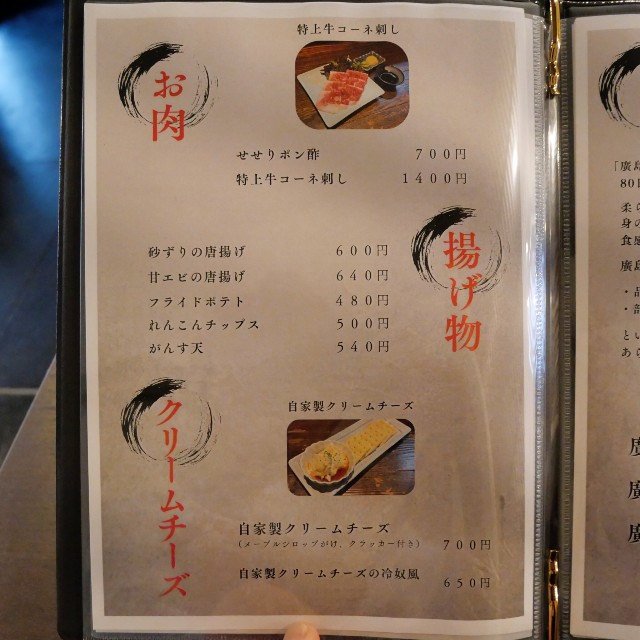 特上牛コーネ刺し
お肉
せせりポン酢 700円
特上牛コーネ刺し 1400円
揚げ物
砂ずりの唐揚げ 600円
甘エビの唐揚げ 640円
フライドポテト 480円
れんこんチップス 500円
がんす天 540円
クリームチーズ
自家製クリームチーズ
自家製クリームチーズ
(メープルシロップがけ、クラッカー付き) 700円
自家製クリームチーズの冷奴風 650円
「廣島
80
柔ら
身の
食感
廣島
・品
・部
とい
あら
廣
廣
廣